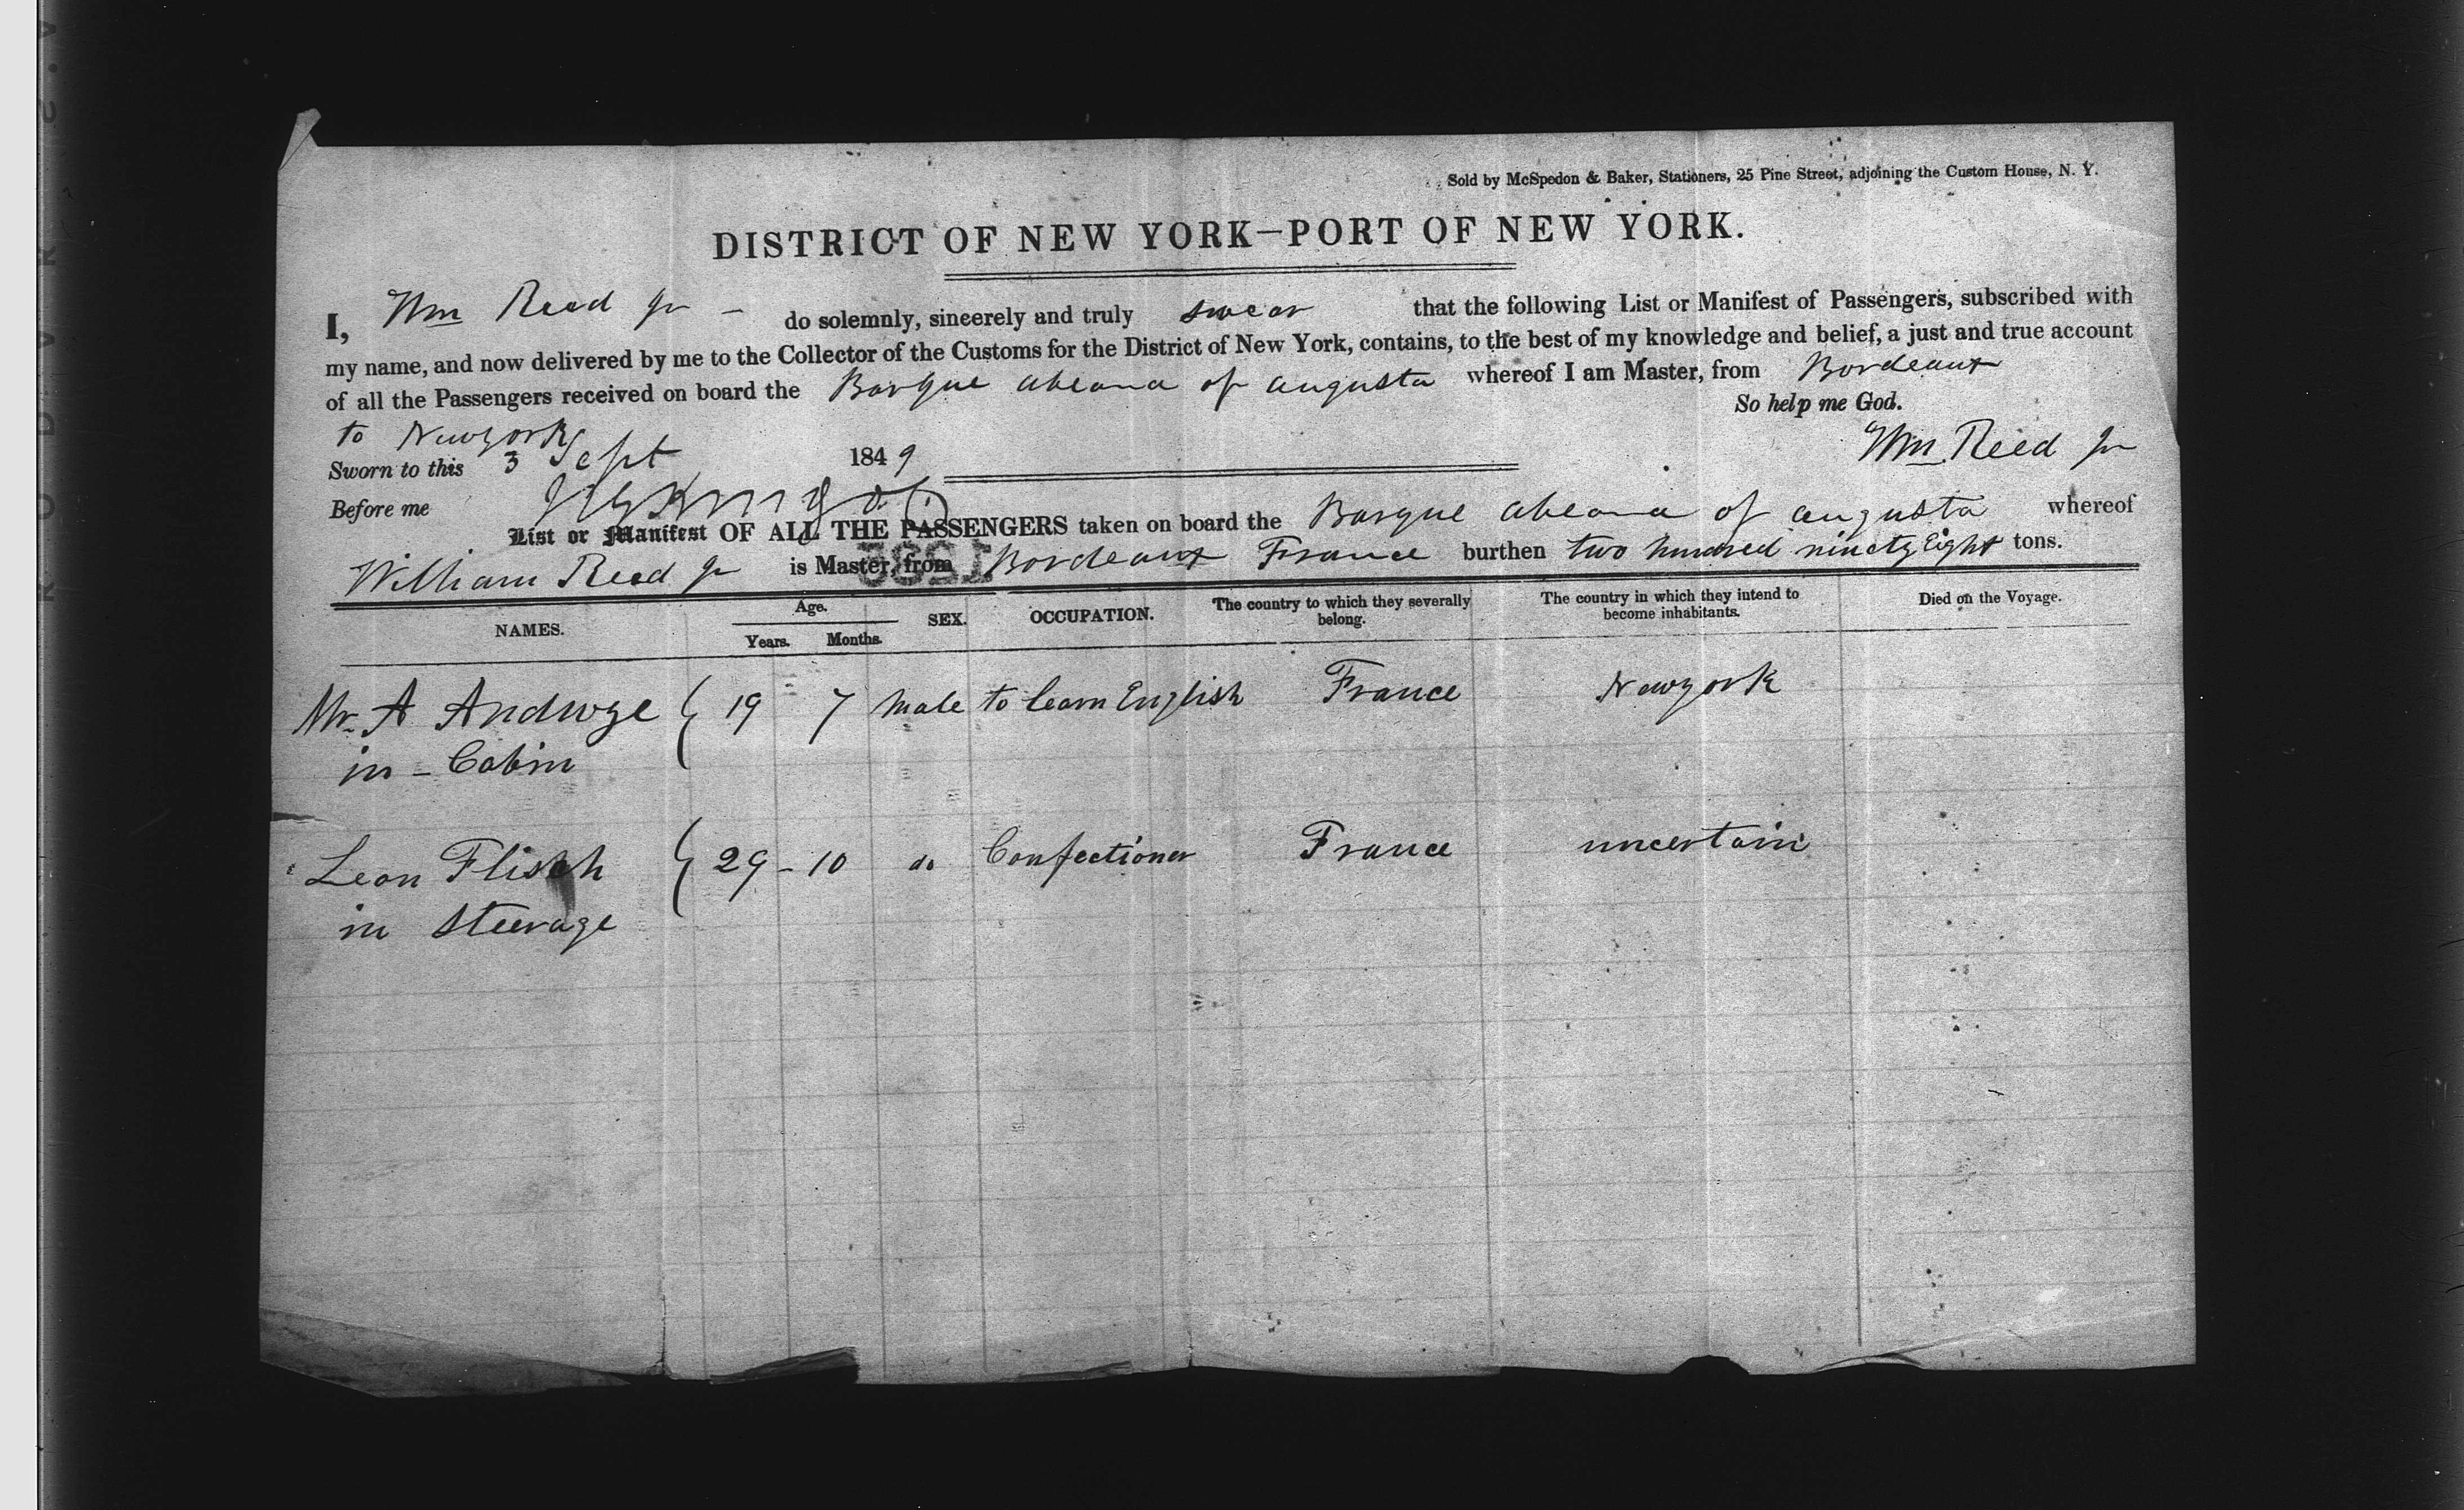 Sold by McSpedon & Baker, Stationers, 25 Pine Street, adjoining the Custom House, N. Y.
DISTRICT OF NEW YORK—PORT OF NEW YORK.
I, Wm Reed Jr - do solemnly, sincerely and truly swear that the following List or Manifest of Passengers, subscribed with
my name, and now delivered by me to the Collector of the Customs for the District of New York, contains, to the best of my knowledge and belief, a just and true account
of all the Passengers received on board the Barque abeona of augusta whereof I am Master, from Bordeaux
to Newyork So help me God.
Sworn to this 3 Sept 1849 Wm Reed Jr
Before me
List or Manifest OF ALL THE PASSENGERS taken on board the Barque abeona of augusta whereof
William Reed Jr is Master, from Bordeaux France burthen two hundred ninety Eight tons.
NAMES. Age. Years. Months. SEX. OCCUPATION. The country to which they severally belong. The country in which they intend to become inhabitants. Died on the Voyage.
Mr A Andwze 19 7 Male to learn English France Newyork
in - Cabin
Leon Flisch 29 - 10 do Confectioner France uncertain
in Steerage